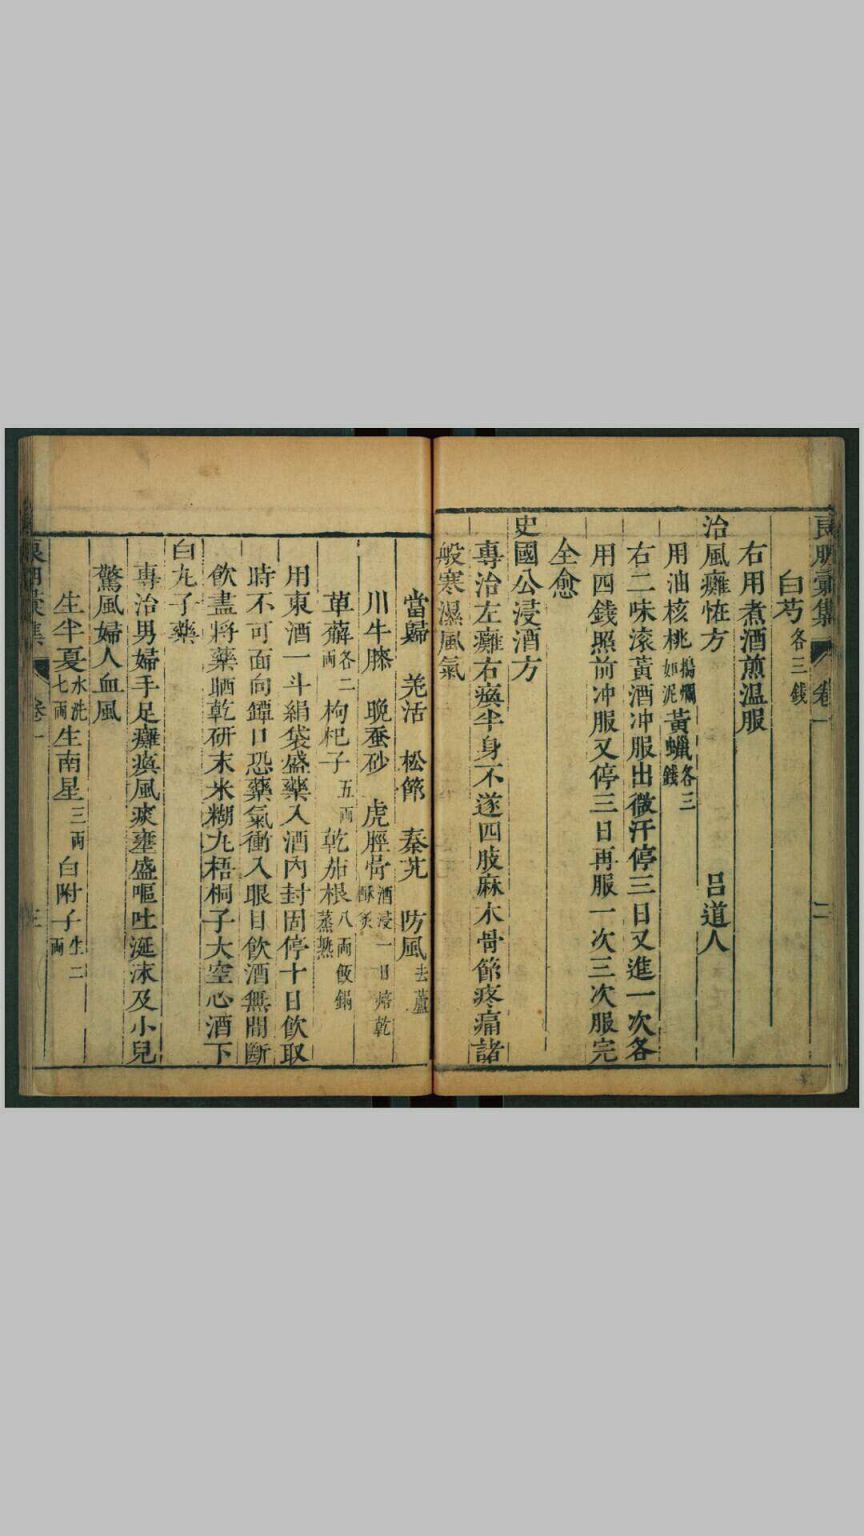 良朋彙集 卷一 二
白芍各三錢
右用煮酒煎溫服
治風癱怪方 呂道人
用油核桃搗爛如泥黃蠟各三錢
右二味滾黃酒冲服出微汗停三日又進一次各
用四錢照前冲服又停三日再服一次三次服完
全愈
史國公浸酒方
專治左癱右瘓半身不遂四肢麻木骨節疼痛諸
般寒濕風氣
當歸 羌活 松節 秦艽 防風去蘆
川牛膝 晚蚕砂 虎脛骨酒浸一日焙乾酥炙
萆薢各二両 枸杞子五両 乾茄根八両飯鍋蒸熟
用東酒一斗絹袋盛藥入酒內封固停十日飲取
時不可面向罈口恐藥氣衝入眼目飲酒無間斷
飲盡將藥晒乾研末米糊丸梧桐子大空心酒下
白丸子藥
專治男婦手足癱瘓風痰壅盛嘔吐涎沫及小兒
驚風婦人血風
生半夏水洗七両 生南星三両 白附子生二両
良朋彙集 卷一 三